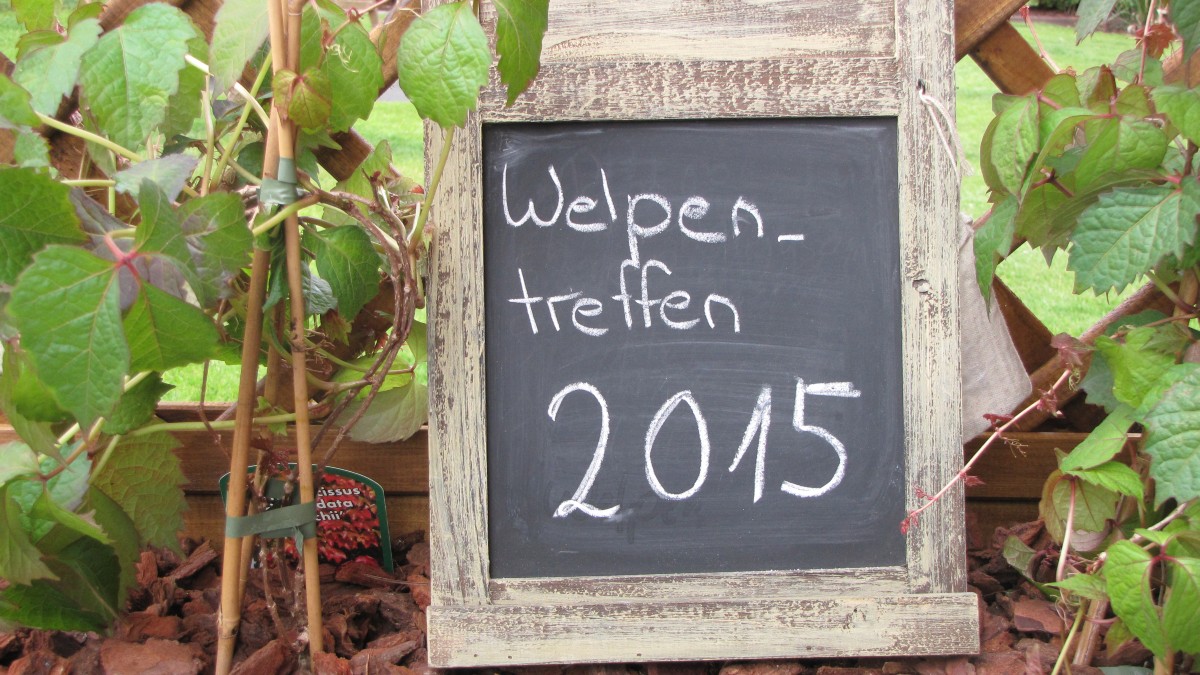 Welpen-
treffen
2015
cissus
data
chii